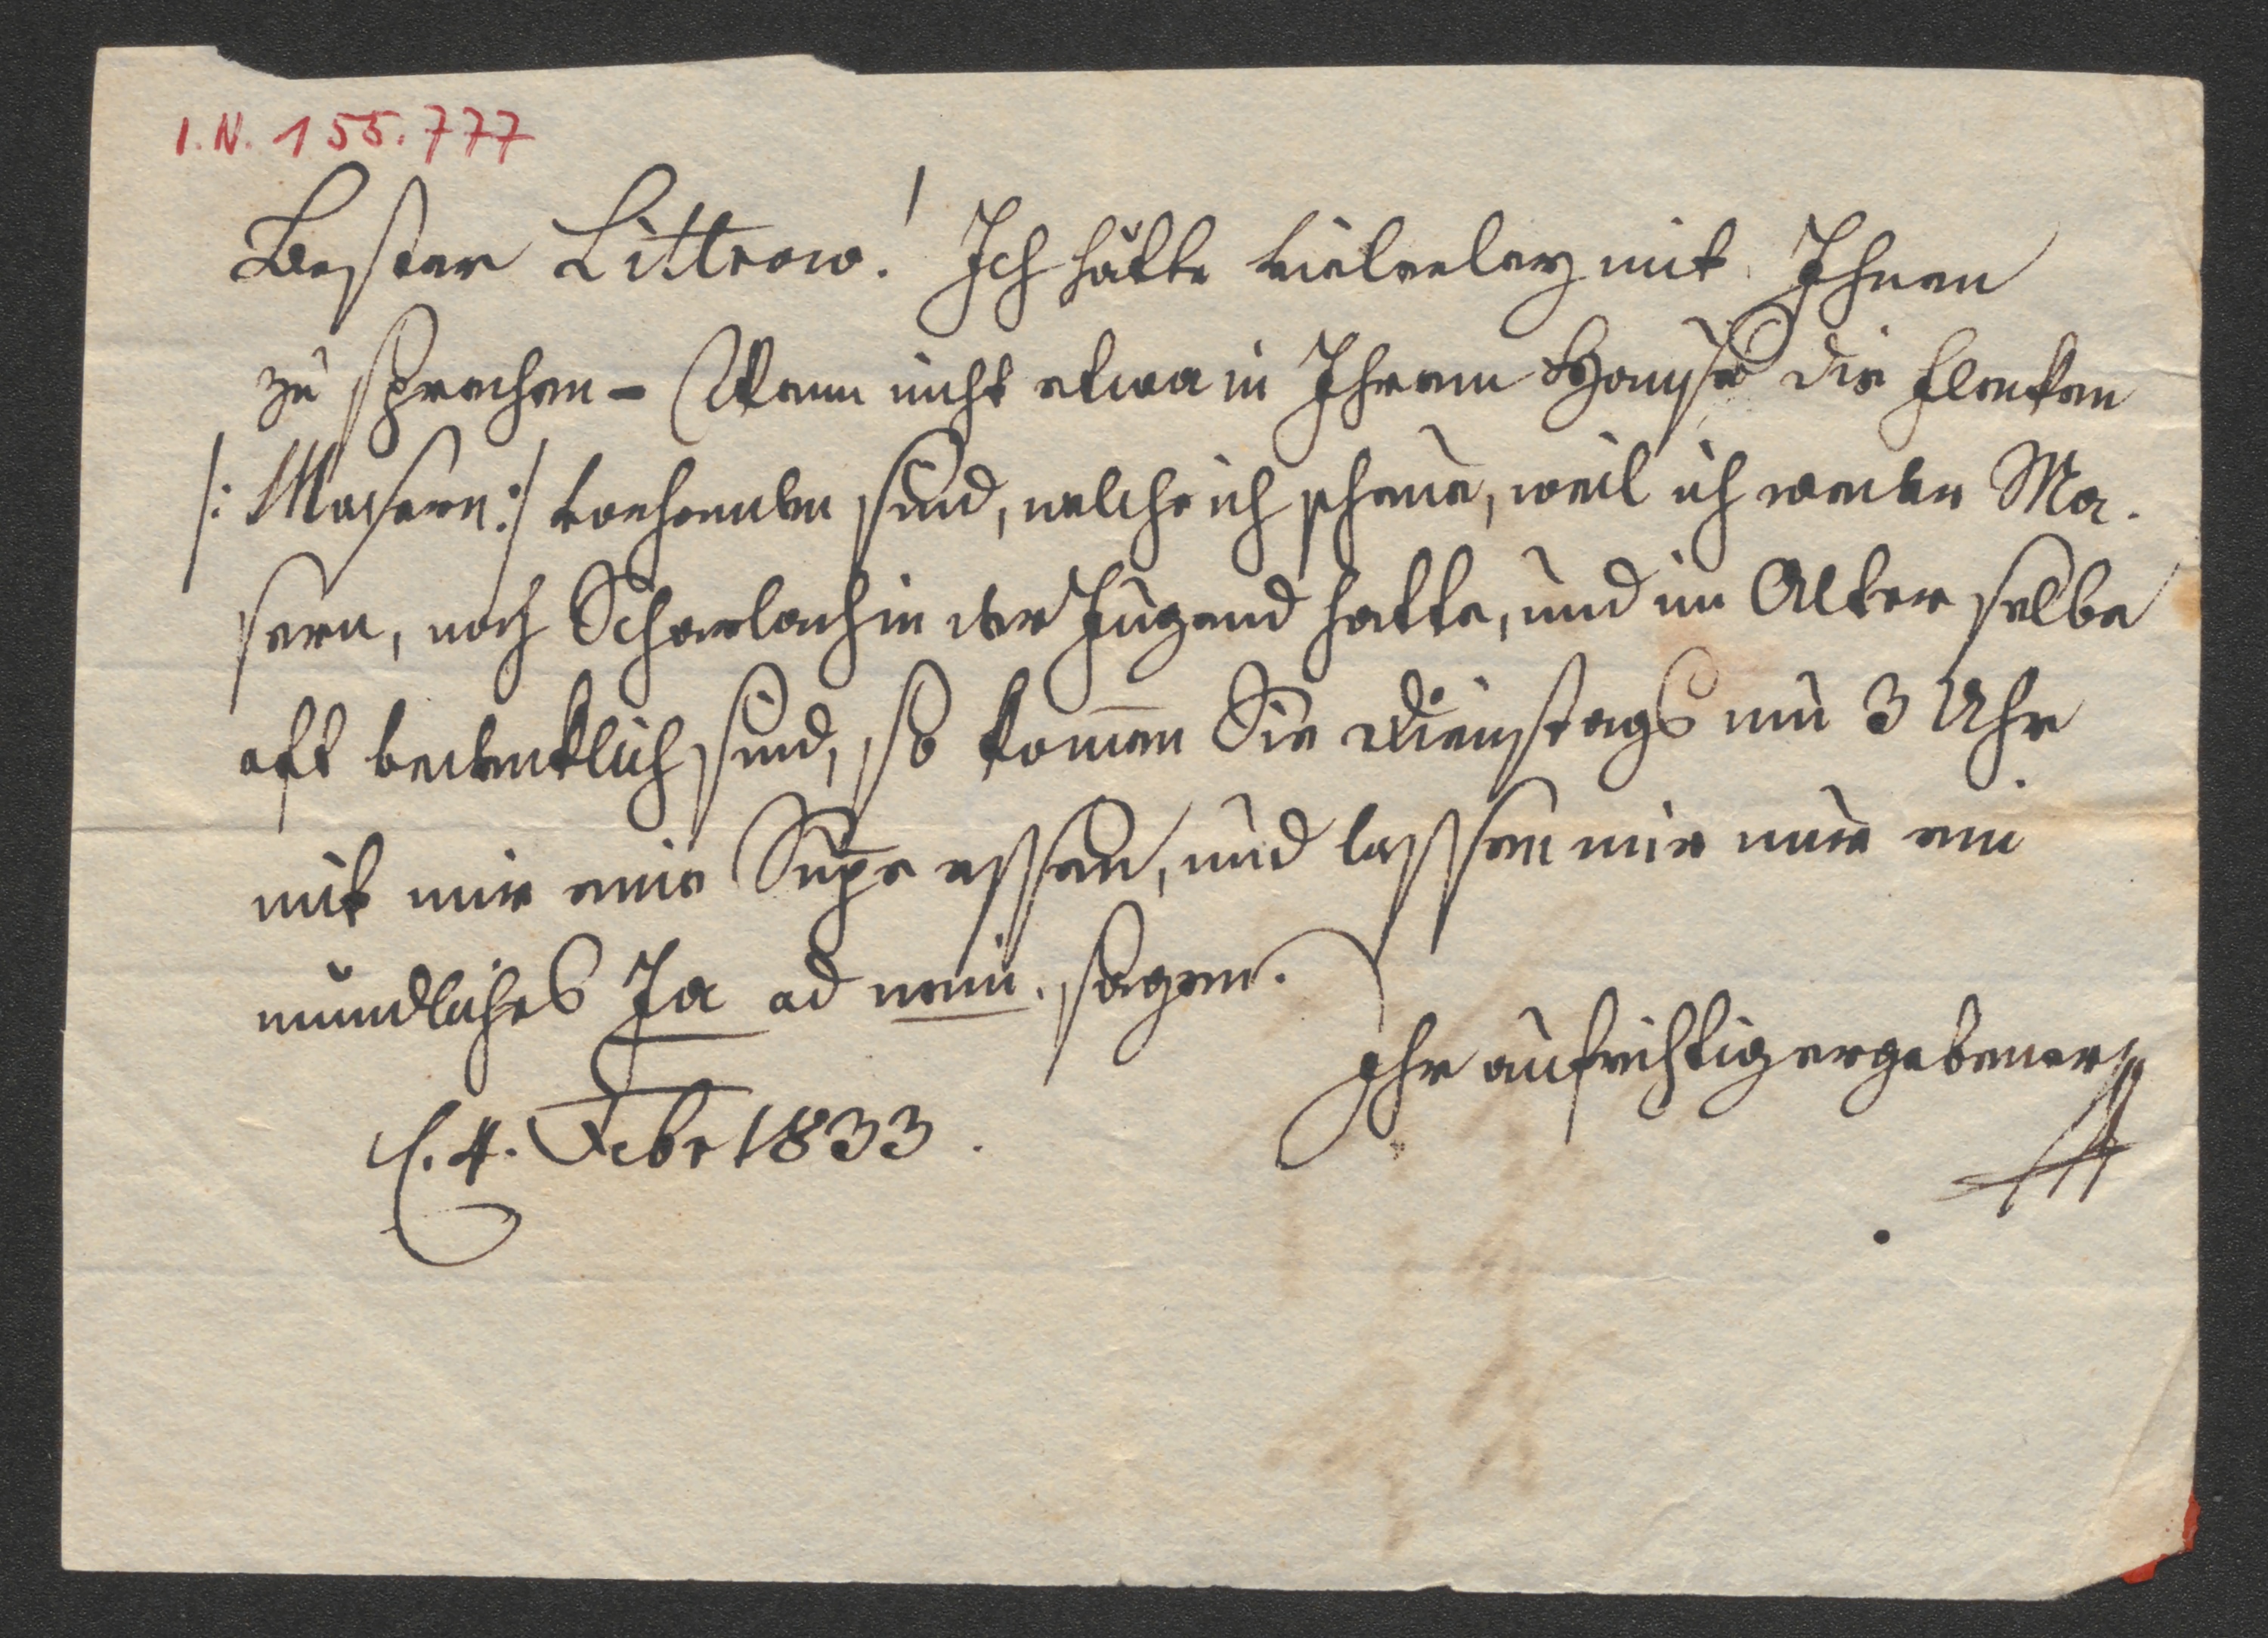 I.N. 155.777
Bester Littrow! Ich hätte vielerley mit Ihnen
zu sprechen – Wenn nicht etwa in Ihrem Hause die Flecken
/: Masern :/ vorhanden sind, welche ich scheue, weil ich weder Ma-
sern, noch Scharlach in der Jugend hatte, und im Alter selbe
oft bedenklich sind, so kom̅en Sie Dienstags um 3 Uhr
mit mir eine Supe essen, und lassen mir nur ein
mündliches Ja od nein. sagen.
Ihr aufrichtig ergebener
4. Febr 1833.